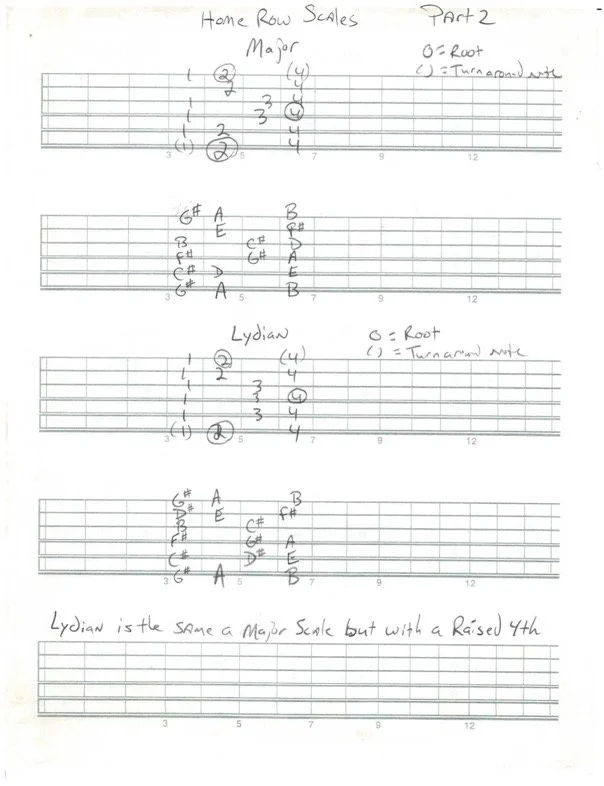 Home Row Scales Part 2
Major O = Root
( ) = Turnaround note
1 2 (4)
2 4
1 3 4
1 3 4
1 2 4
(1) 2 4
3 5 7 9 12
G# A B
E F#
B C# D
F# G# A
C# D E
G# A B
3 5 7 9 12
Lydian O = Root
( ) = Turnaround note
1 2 (4)
1 2 4
1 3
1 3 4
1 3 4
(1) 2 4
3 5 7 9 12
G# A B
D# E F#
B C#
F# G# A
C# D# E
G# A B
3 5 7 9 12
Lydian is the same a Major Scale but with a Raised 4th
3 5 7 9 12